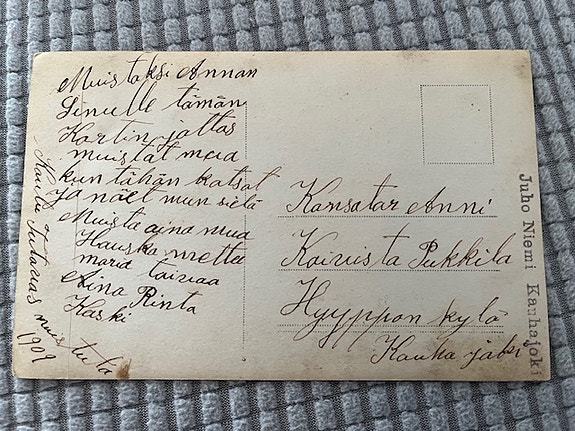 Muistaksi Annan
Sinulle tämän
Kartin jottas
muistat mua
kun tähän katsot
ja näet mun sielä
Muista aina mua
Hauska metta
maria toivaa
Aina Rinta
Kaski
Tutavas muistuta
1909
Kansatar Anni
Koivista Pukkila
Hyyppän kylä
Kauha joki
Juho Niemi Kauhajoki